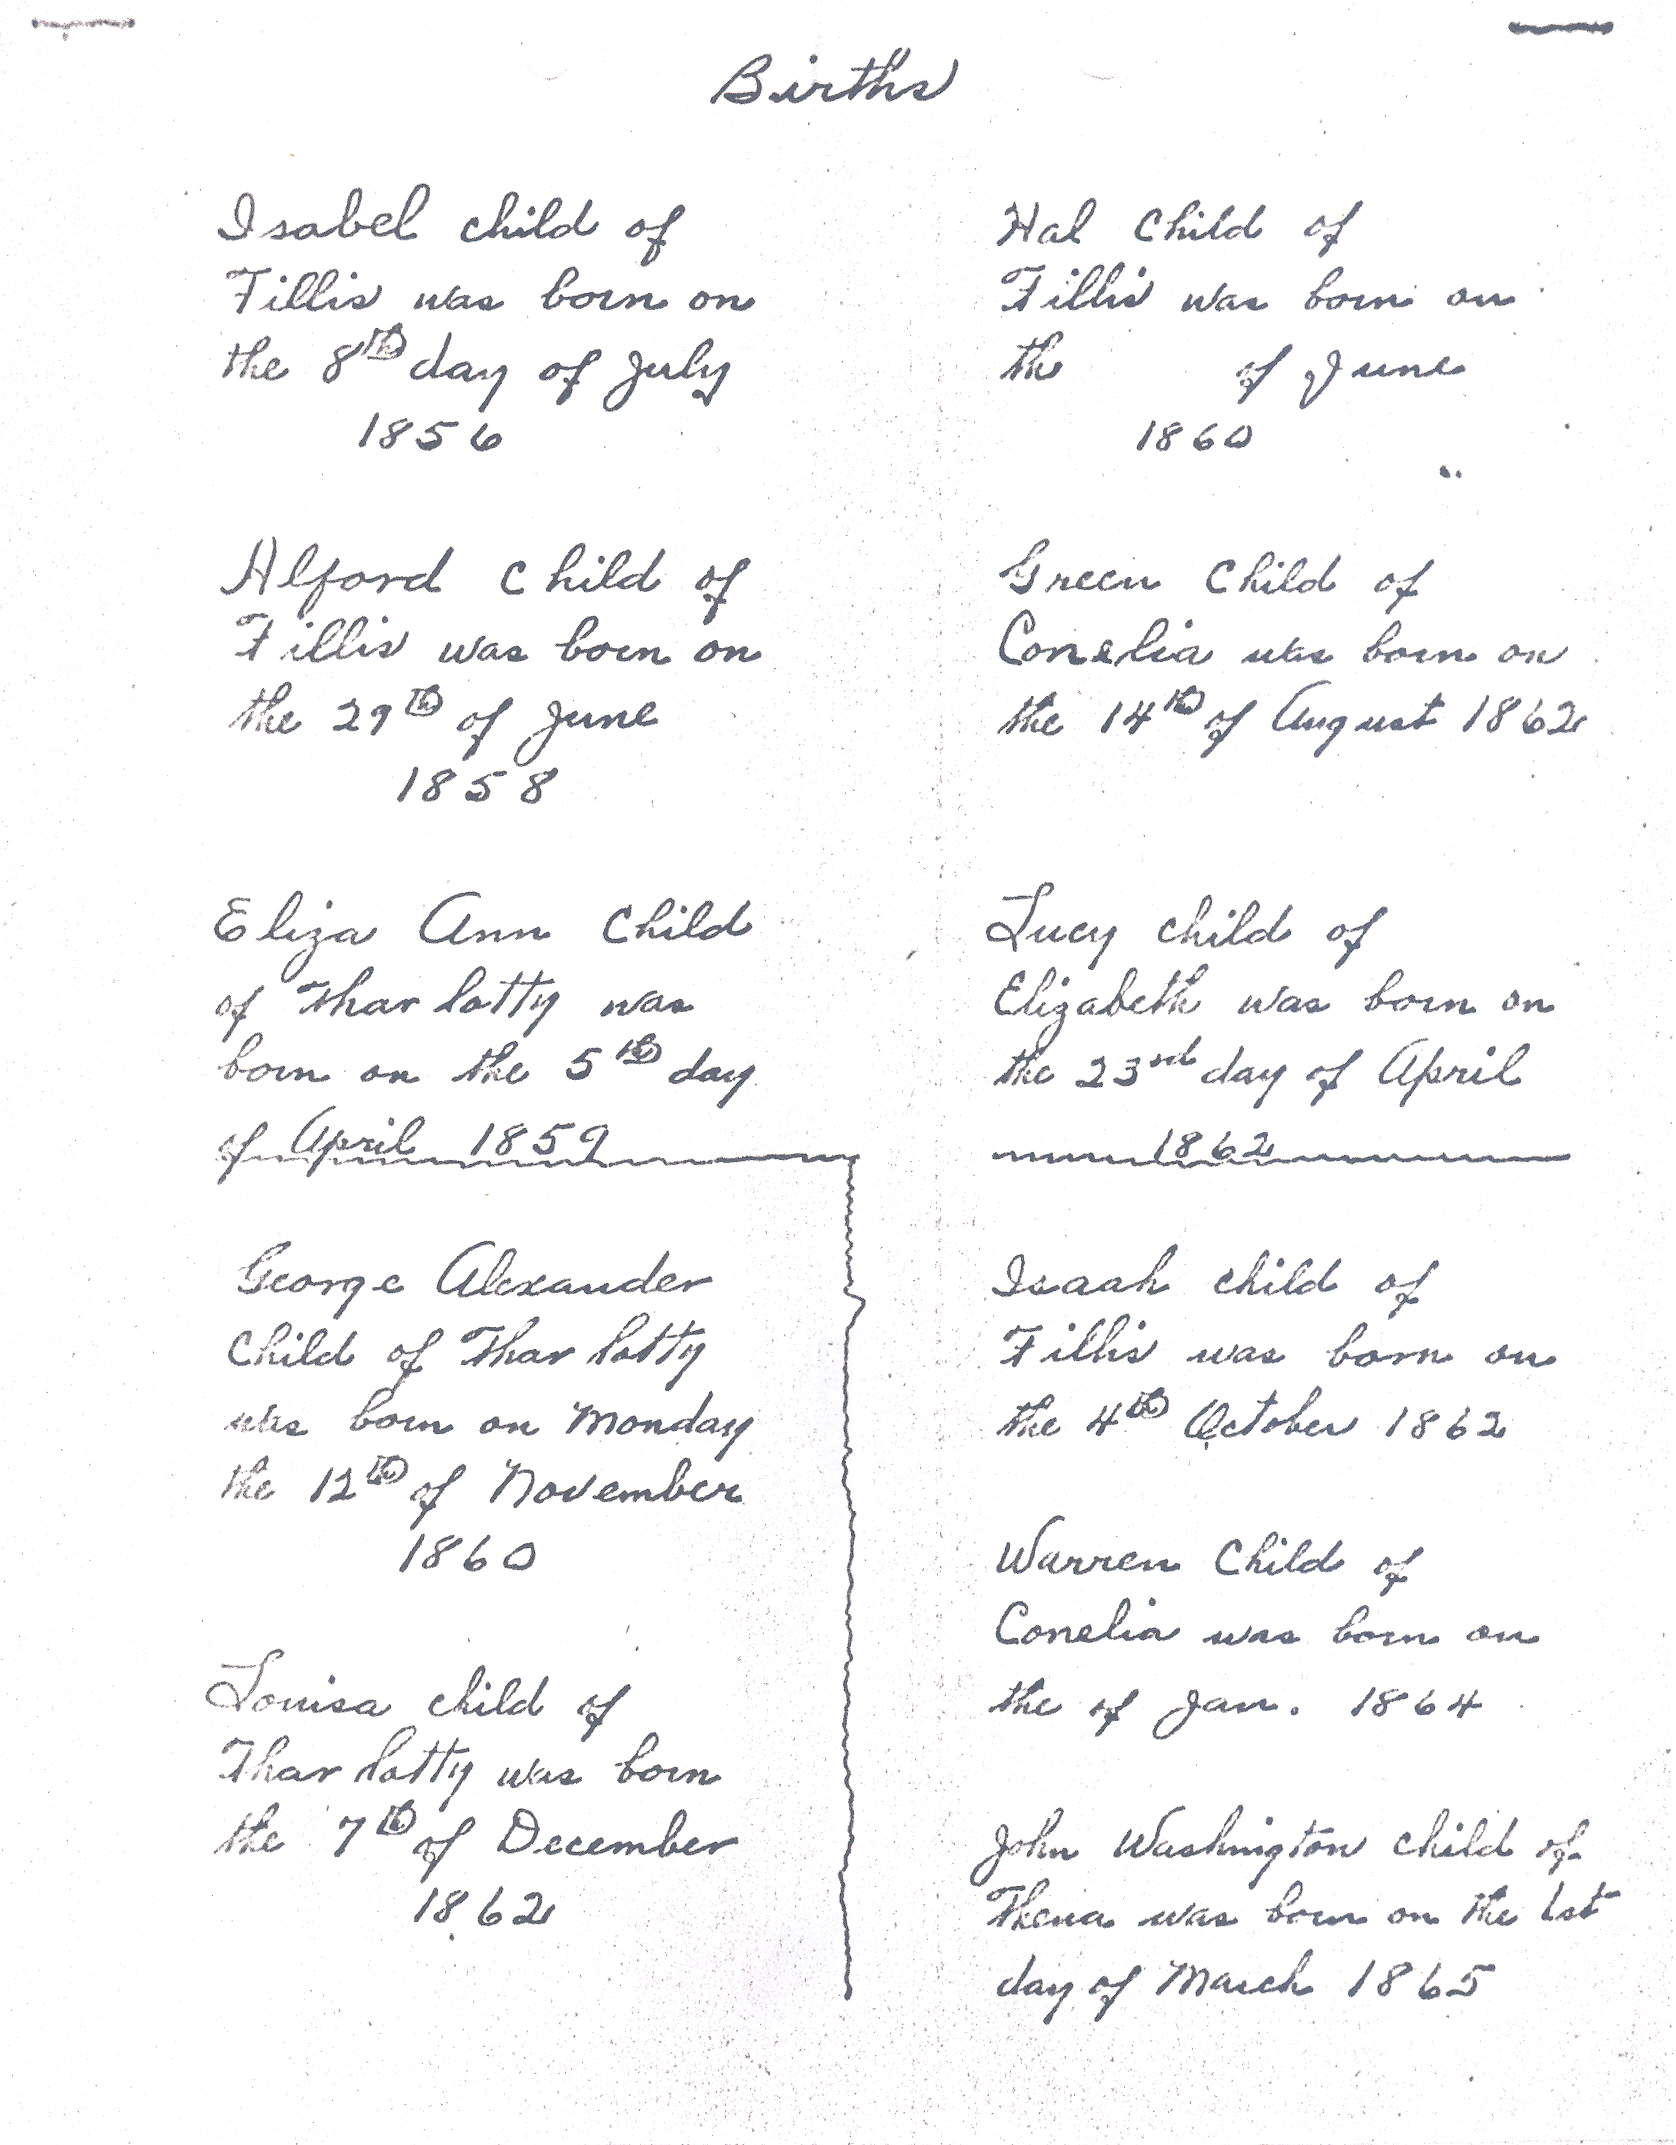 Births
Isabel child of
Fillis was born on
the 8th day of July
1856
Alford child of
Fillis was born on
the 29th of June
1858
Eliza Ann child
of Thar lotty was
born on the 5th day
of April 1859
George Alexander
child of Thar lotty
was born on Monday
the 12th of November
1860
Louisa child of
Thar lotty was born
the 7th of December
1862
Hal child of
Fillis was born on
the of June
1860
Green child of
Conelia was born on
the 14th of August 1862
Lucy child of
Elizabeth was born on
the 23rd day of April
1862
Isaah child of
Fillis was born on
the 4th October 1862
Warren child of
Conelia was born on
the of Jan. 1864
John Washington child of
Thena was born on the 1st
day of March 1865